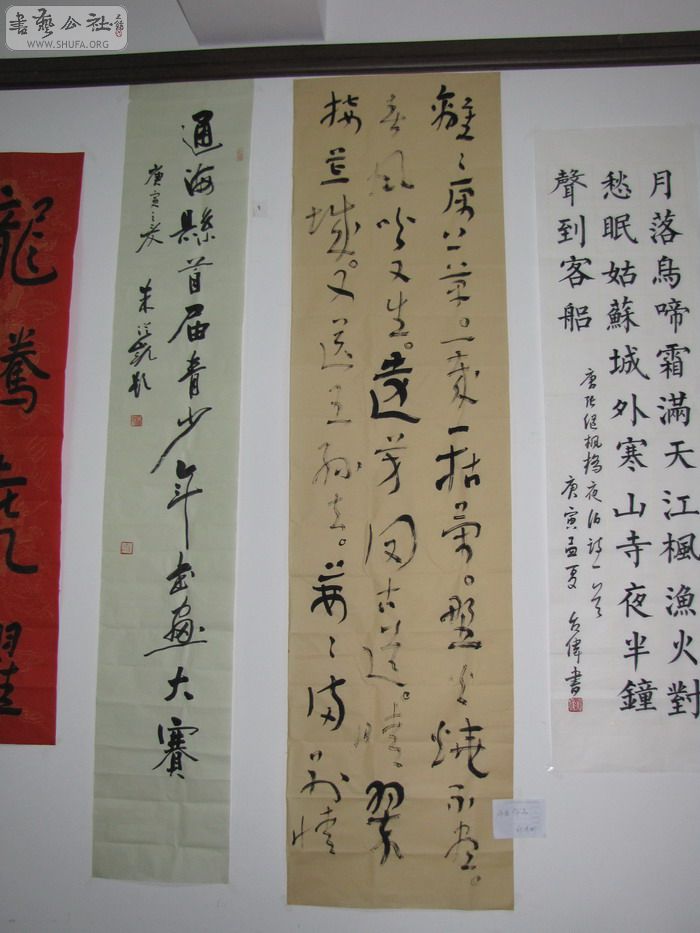 書藝公社
WWW.SHUFA.ORG
月落烏啼霜滿天江楓漁火對
愁眠姑蘇城外寒山寺夜半鐘
聲到客船
唐張繼楓橋夜泊詩一首
庚寅孟夏 偉書
離〻原上草。一歲一枯榮。野火燒不盡。
春風吹又生。遠芳侵古道。晴翠
接荒城。又送王孫去。萋〻滿別情
通海縣首届青少年书畫大賽
庚寅之夏
朱
龍騰虎躍